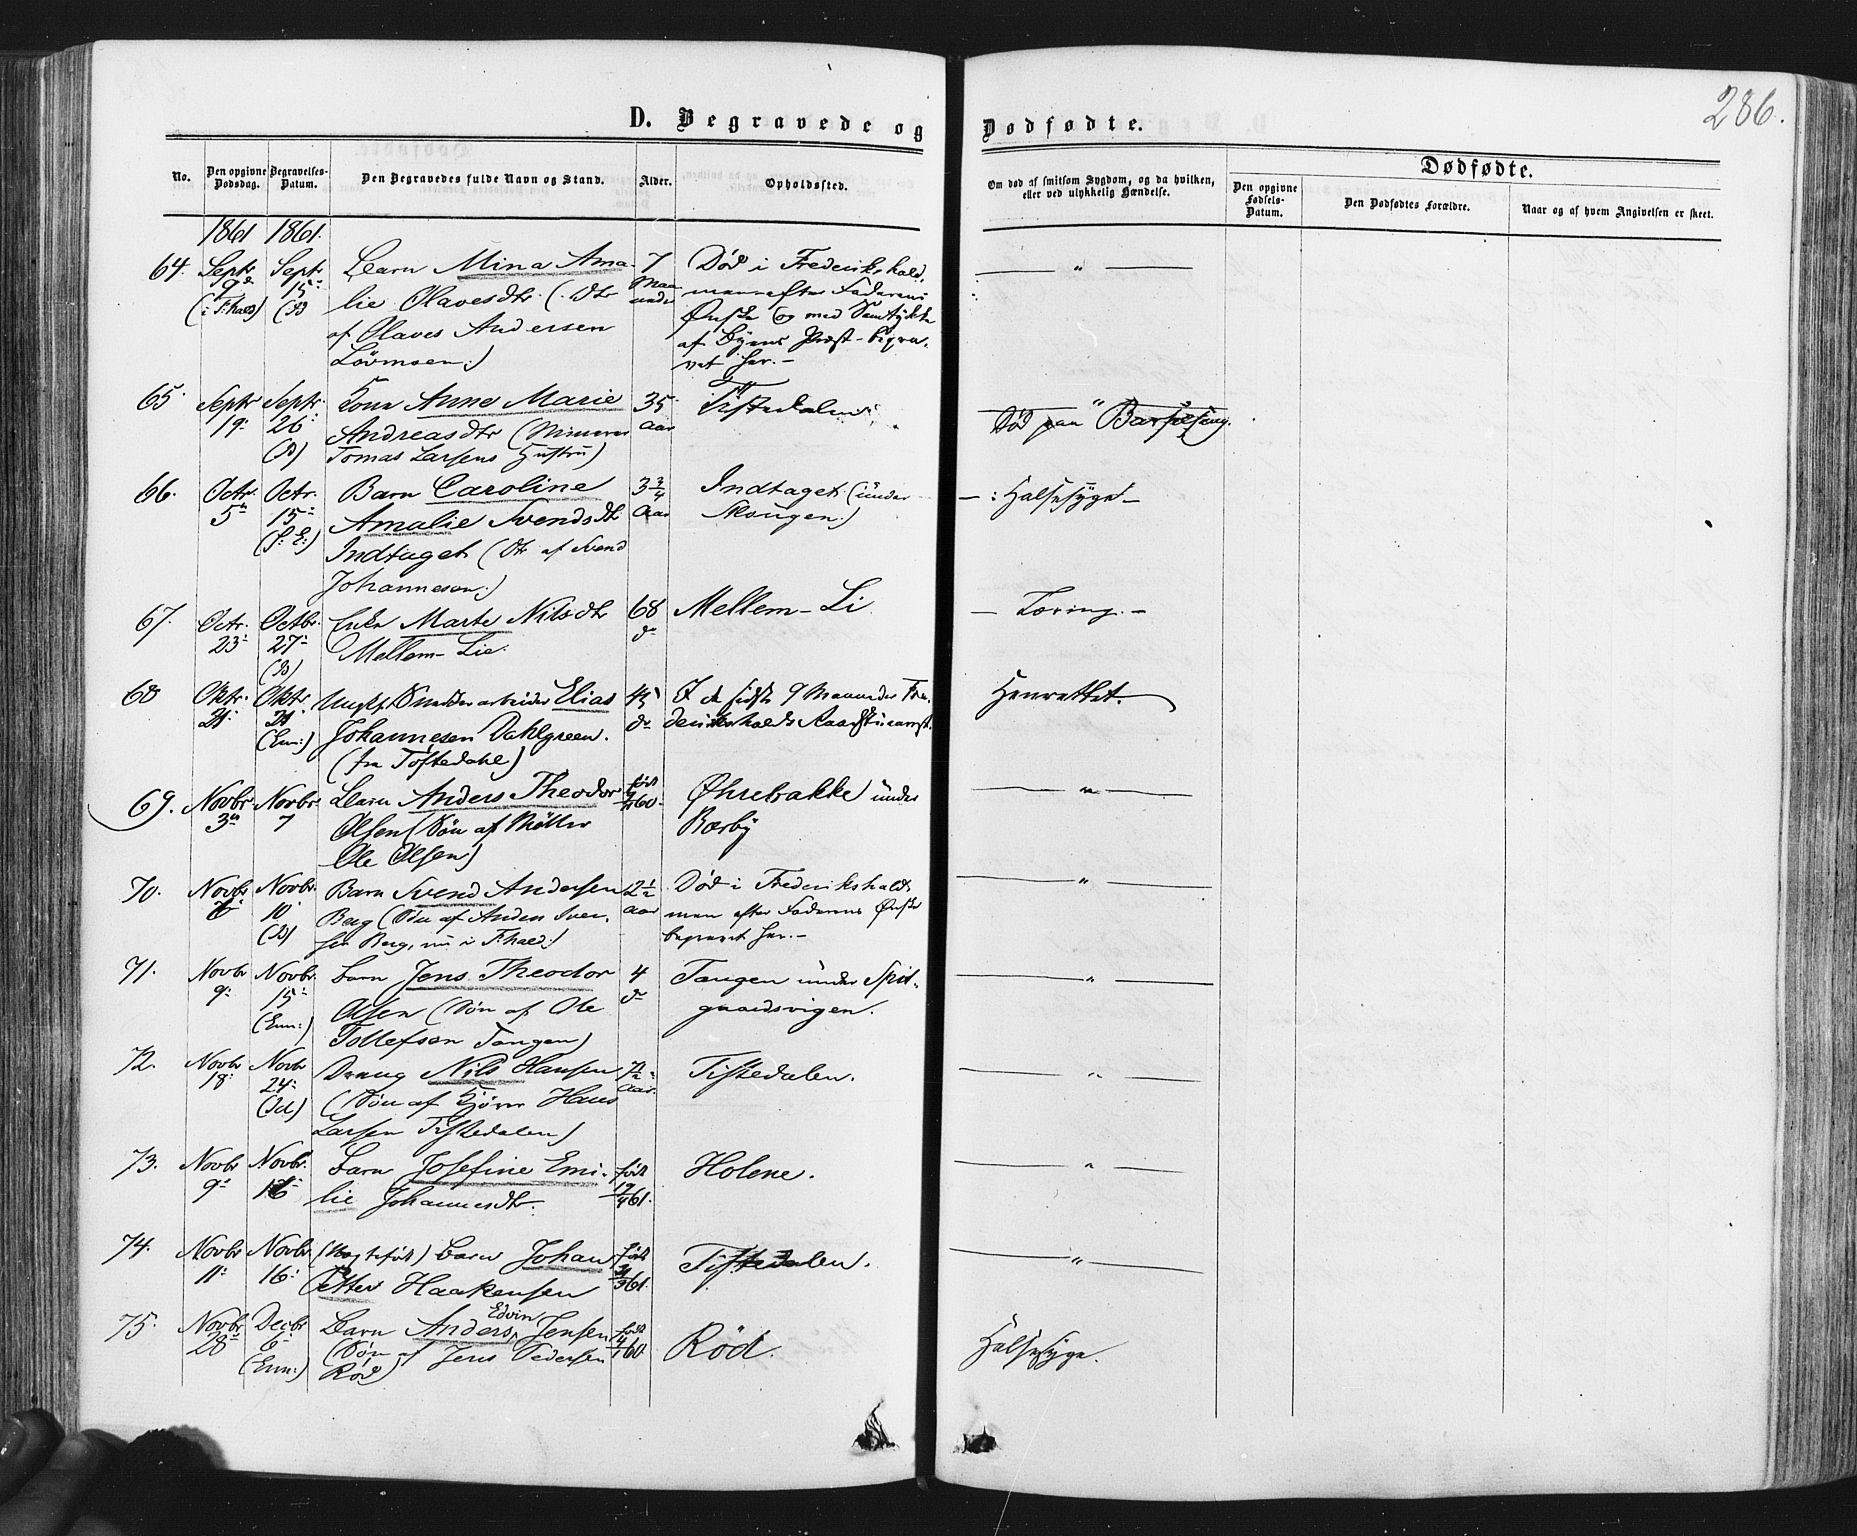 D. Begravede og Dødfødte.
286.
No.
Den opgivne Dødsdag.
Begravelses-Datum.
Den Begravedes fulde Navn og Stand.
Alder.
Opholdssted.
Om død af smitsom Sygdom, og da hvilken, eller ved ulykkelig Hændelse.
Dødfødte.
Den opgivne Fødsels-Datum.
Den Dødfødtes Forældre.
Naar og af hvem Angivelsen er skeet.
1861 1861.
64. Septr Septr Barn Mina Ama- 7 Død i Frederikshald, — " —
9de 15: lie Olavesdtr. (: Dtr Maaneder men efter Faderens
(i F:hald) (B) af Olaves Andersen Ønske og med Samtykke
Lövmoen:) af Byens Præst - begra-
vet her. -
65. Septr Septr. Kone Anne Marie 35 Tistedalen; — " —
19: 26: Andreasdtr (Murer Aar Død paa Barselseng.
(B) Tomas Larsens Hustru)
66. Octr. Octr. Barn Caroline 3 3/4 Indtaget (under - : Halssyge! -
5: 15: Amalie Svendsdtr Aar Skougen:)
(S: E:) Indtaget (Dtr af Svend
Johannesen:)
67. Octr. Octbr. Enke Marte Nilsdtr 68 Mellem-Li - Tæring. -
23: 27: Mellem-Lie. do
(B)
68 Oktr. Oktr. Ungk. Smedderarbeider Elias 45 I de sidste 9 Maaneder Fre- Henrettet.
21: 21: Johannesen Dahlgreen. do derikshalds Raadstuearrest.
(Enn:) (fra Töstedahl)
69. Novbr Novbr. Barn Anders Theodor født Øhrebakke under — " —
3: 7 Olsen (Søn af Møller 60. Bærby
Ole Olsen)
70. Novbr Novbr. Barn Svend Andersen 2 1/2 Død i Frederikshald, — " —
10: Berg (Søn af Anders Sven- Aar men efter Faderens Ønske
(B) sen Berg, nu i F:hald:) begravet her. -
71. Novbr Novbr. Barn Jens Theodor 4 Tangen under Spid- — " —
9: 15: Olsen (Søn af Ole do gaardsvigen.
(Enn:) Tollefsen Tangen)
72. Novbr Novbr Dreng Nils Hansen 7 1/2 Tistedalen. — " —
18: 24: (Søn af Bjørn Hans Aar.
(Id.) Larsen Tistedalen)
73. Novbr Novbr. Barn Josefine Emi- født Holene. — " —
9: 16: lie Johannesdtr. 17/4 61.
74. Novbr Novbr (Uægtefød) Barn Johan født Tistedalen. — " —
11: 16: Petter Haakensen 61.
75. Novbr Decbr Barn Anders Edvin Jensen født Rød. Halssyge.
28: 6: (Søn af Jens Pedersen 60
(Enn:) Rød)